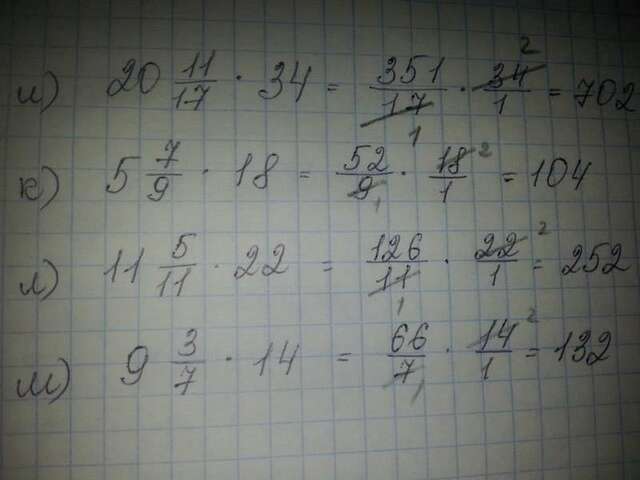 и) 20 11/17 · 34 = 351/17 1 · 34/1 2 = 702
к) 5 7/9 · 18 = 52/9 1 · 18/1 2 = 104
л) 11 5/11 · 22 = 126/11 1 · 22/1 2 = 252
м) 9 3/7 · 14 = 66/7 1 · 14/1 2 = 132